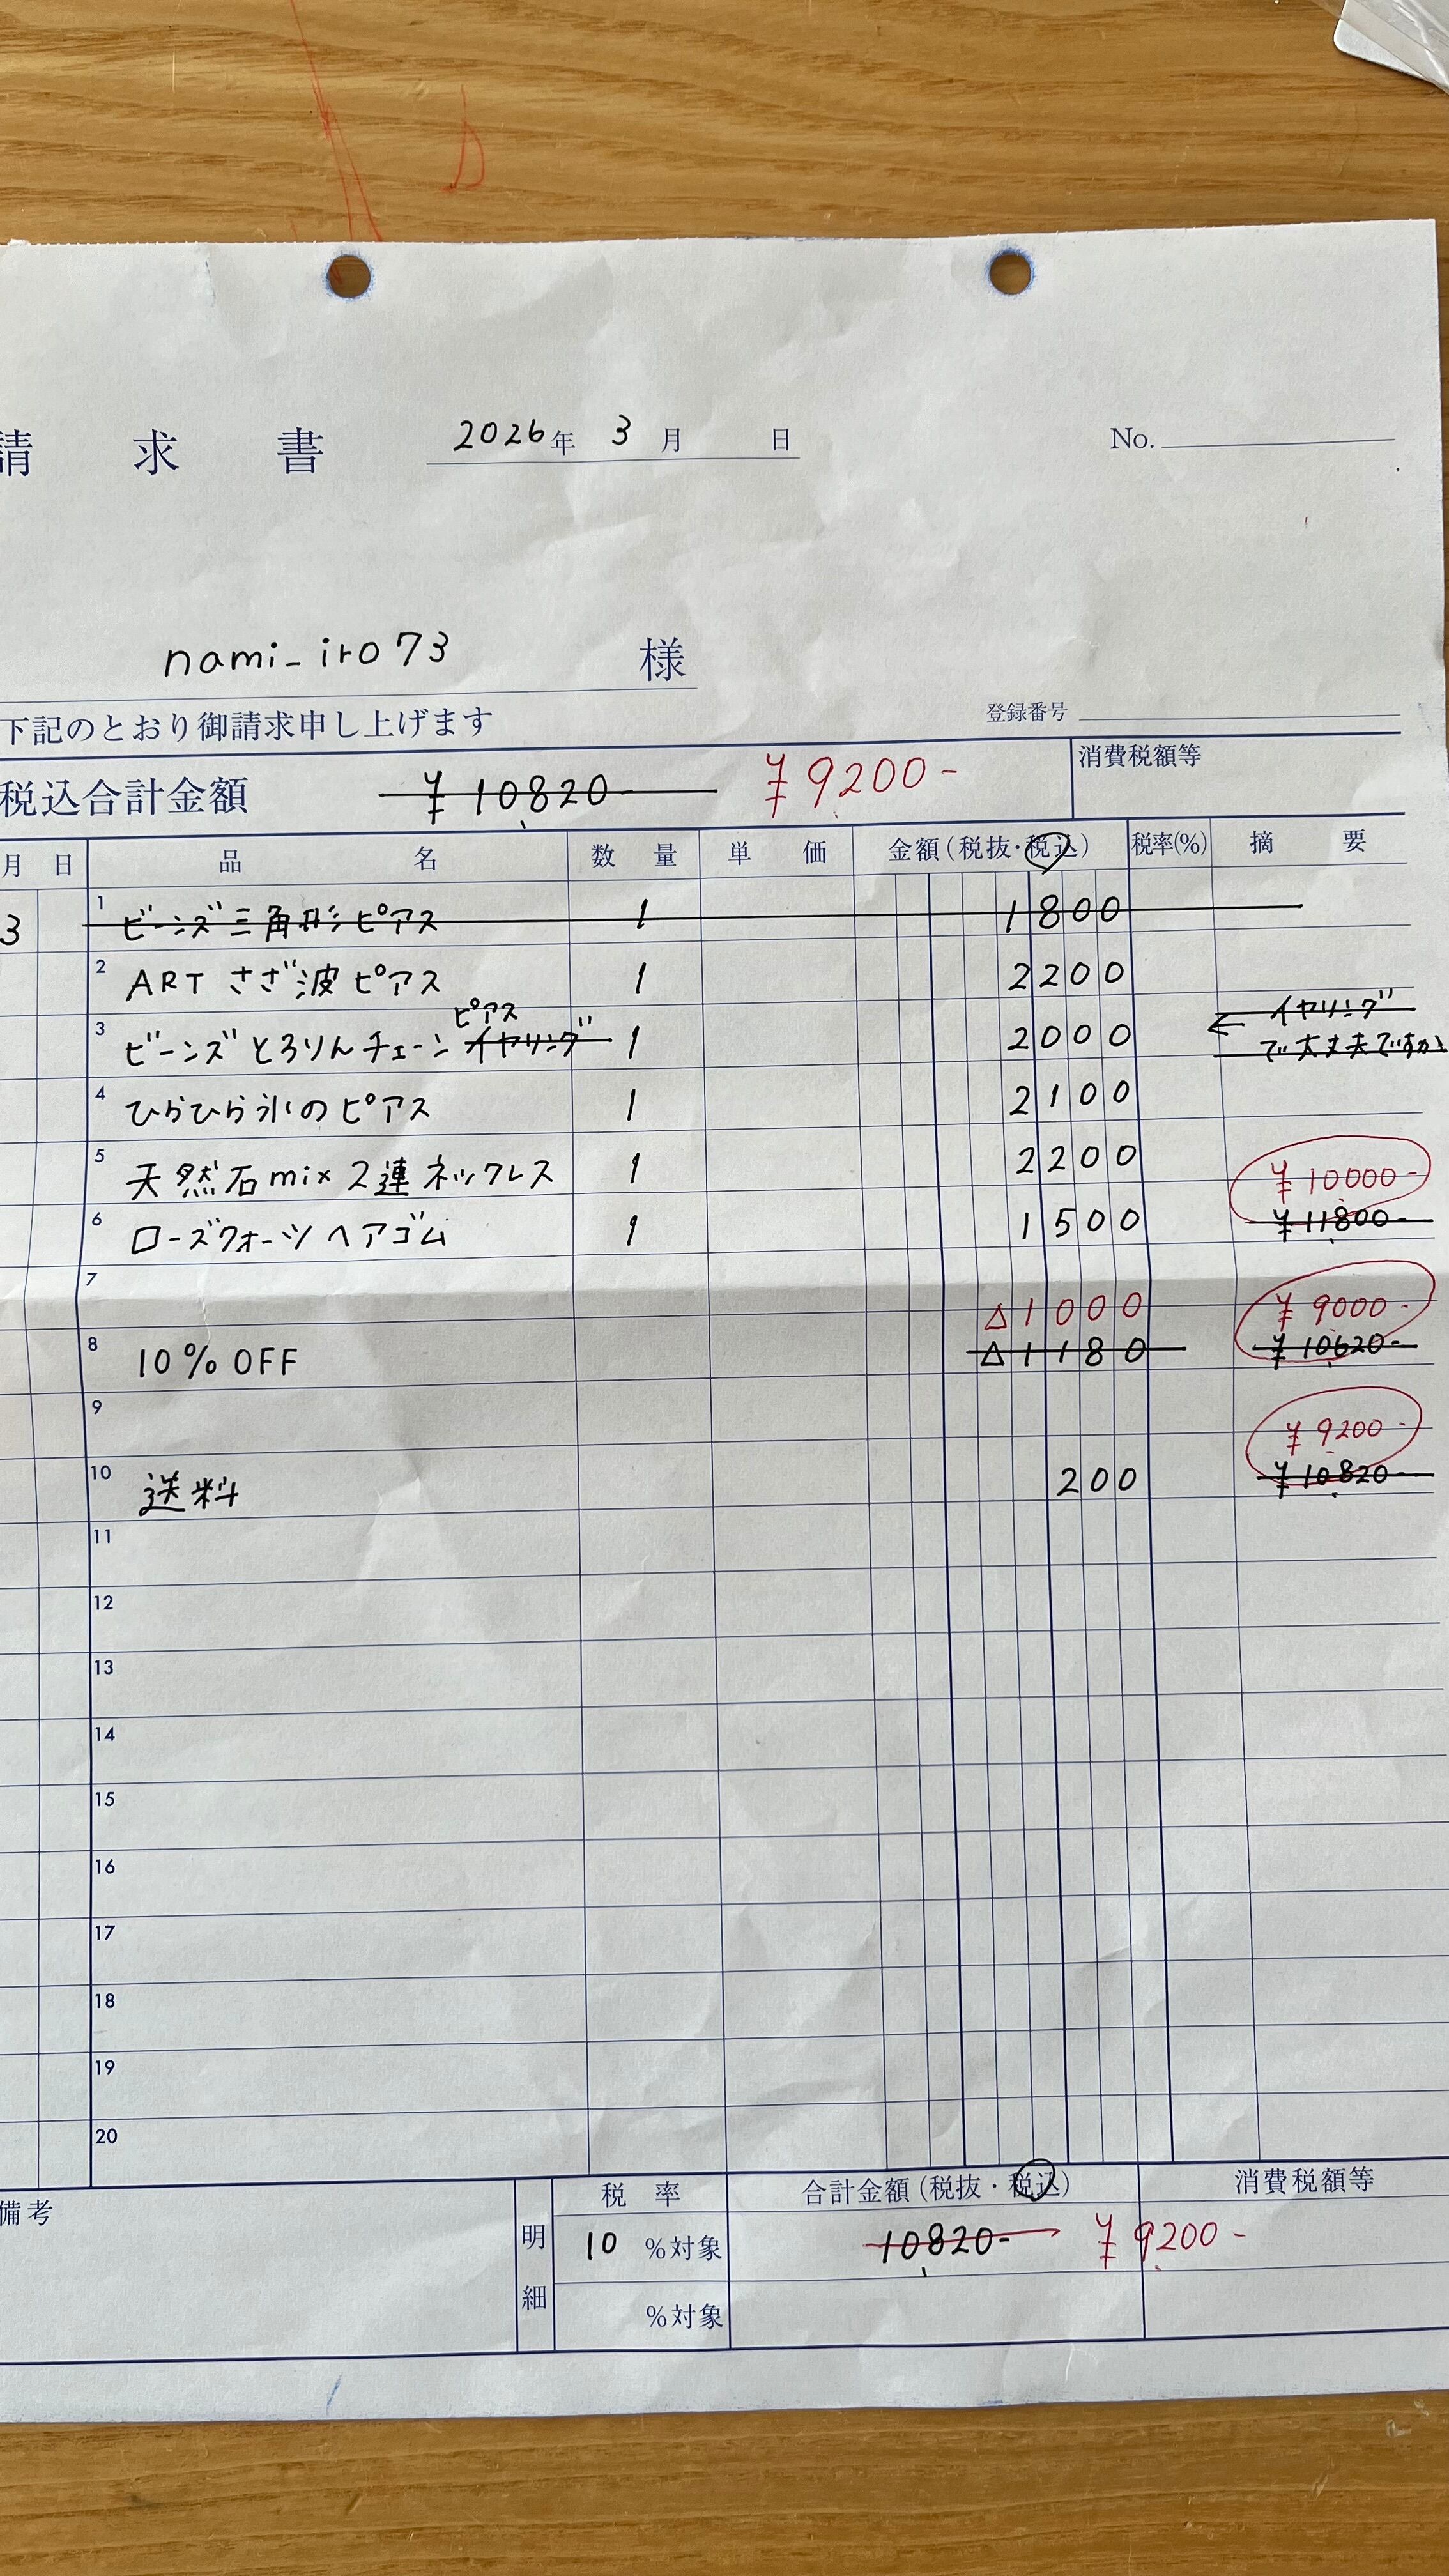 請 求 書 2026年 3月 日 No.
nami-iro73 様
下記のとおり御請求申し上げます 登録番号
税込合計金額 ¥10,820- ¥9,200- 消費税額等
月 日 品 名 数 量 単 価 金額(税抜・税込) 税率(%) 摘 要
3 1 ビーンズ三角形ピアス 1 1800
2 ARTさざ波ピアス 1 2200
ピアス イヤリング
3 ビーンズとろりんチェーンイヤリング 1 2000 ← で大丈夫ですか
4 ひらひら氷のピアス 1 2100
5 天然石mix2連ネックレス 1 2200 ¥10,000-
6 ローズクォーツヘアゴム 1 1500 ¥11,800-
7 △1000 ¥9,000-
8 10%OFF △1180 ¥10,620-
9 ¥9,200-
10 送料 200 ¥10,820-
11
12
13
14
15
16
17
18
19
20
備考 明細 税 率 合計金額(税抜・税込) 消費税額等
10 %対象 10,820- ¥9,200-
%対象